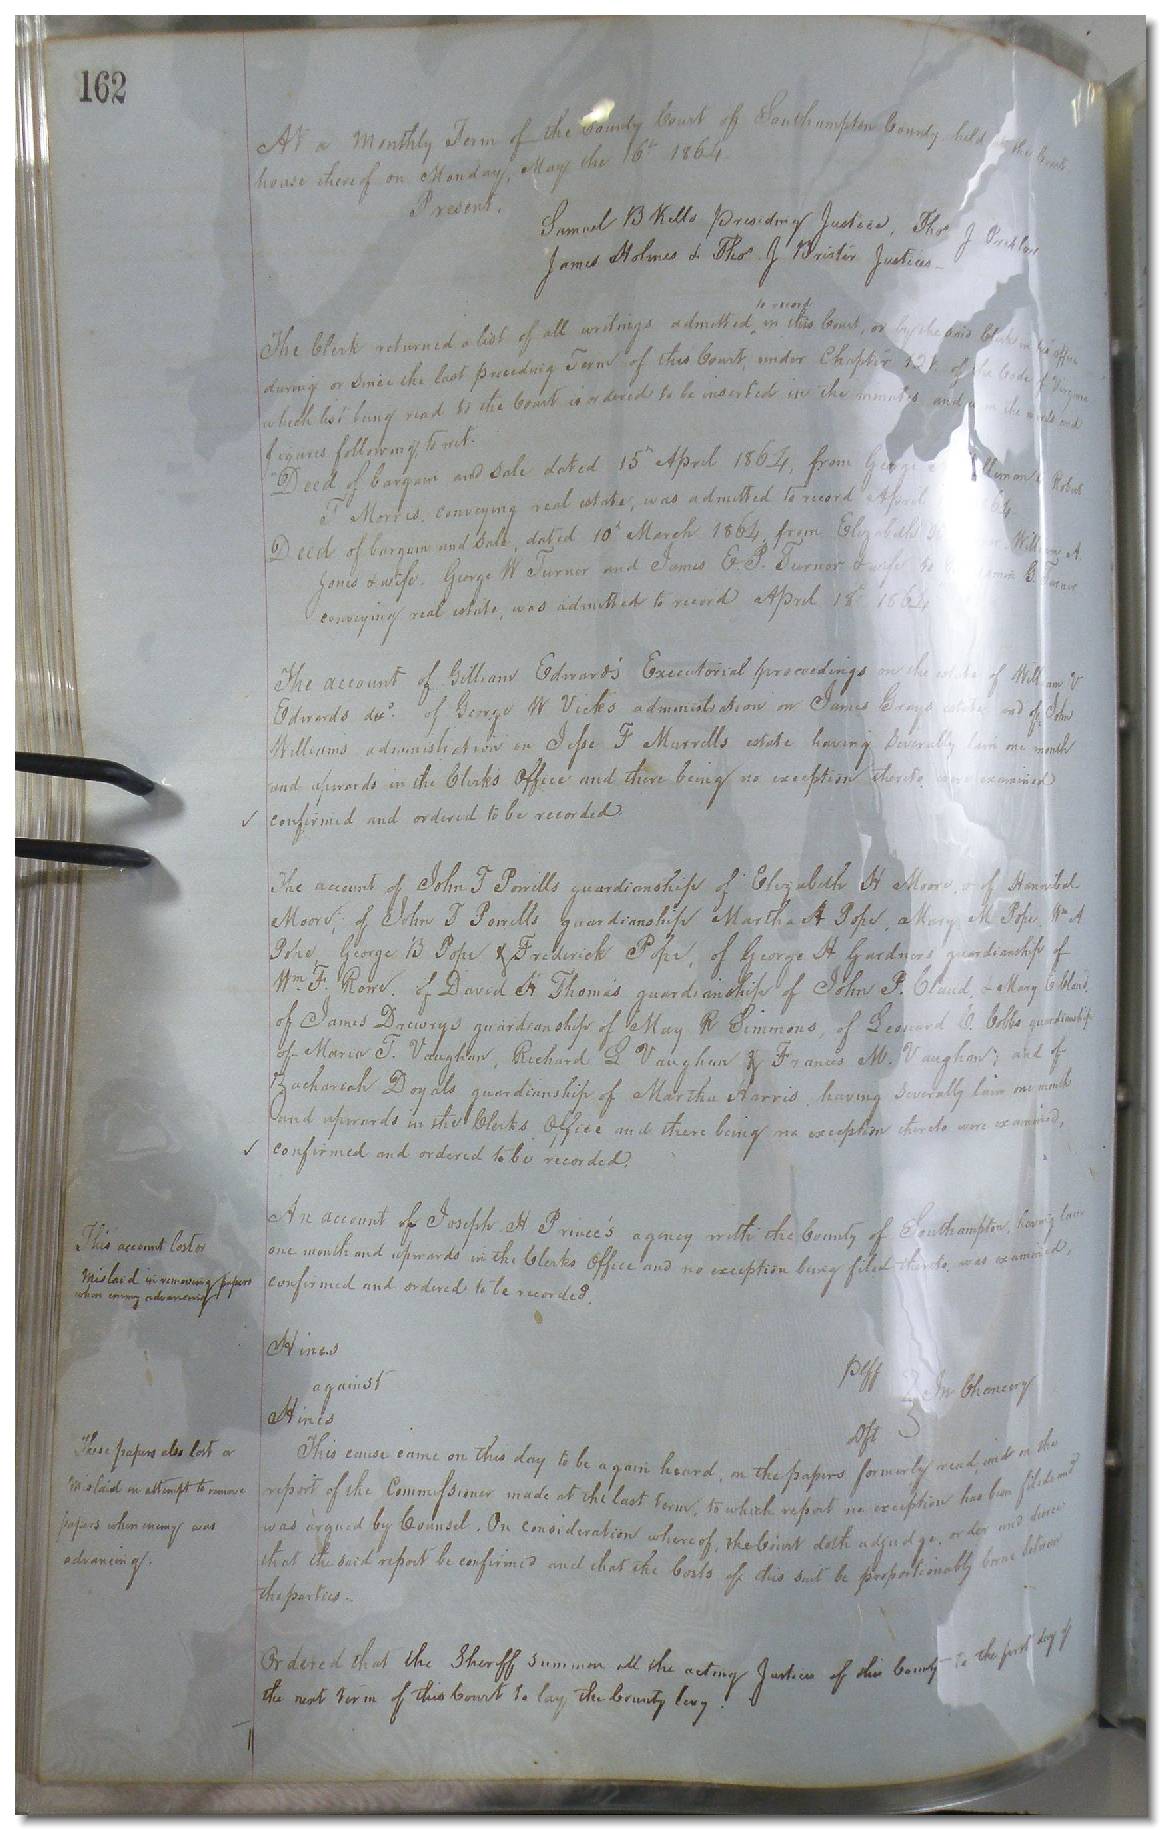 162
At a Monthly Term of the County Court of Southampton County held at the Court
house thereof on Monday, May the 16th 1864
Present.
Samuel B Kello Presiding Justice, Thos J Pretlow
James Holmes & Thos J Brister Justices
to record
The Clerk returned a list of all writings admitted, in this Court, or by the said Clerk in his office
during or since the last preceding Term of this Court, under Chapter 121 of the Code of Virginia
which list being read to the Court is ordered to be inserted in the minutes and is in the words and
figures following, to wit.
Deed of bargain and sale dated 15th April 1864, from George to Robert
T Morris, conveying real estate, was admitted to record April 64
Deed of bargain and sale, dated 10th March 1864, from Elizabeth William A
Jones & wife, George W Turner and James E. P. Turner & wife to Benjamin B. Turner
conveying real estate, was admitted to record April 18th 1864
The account of Gilliam Edwards's Executorial proceedings on the estate of William V
Edwards decd. of George W Vick's administration on James Grays estate and of John
Williams administration on Jesse F Murrells estate having severally lain one month
and upwards in the Clerk's Office and there being no exception thereto were examined
✓ confirmed and ordered to be recorded
The account of John T Powells guardianship of Elizabeth H Moore, & of Hannibal
Moore; of John T Powells guardianship Martha A Pope, Mary M Pope, Wm A
Pope, George B Pope & Frederick Pope, of George H Gardners guardianship of
Wm F. Rowe. of David H Thomas guardianship of John P. Claud, & Mary E Claud,
of James Drewrys guardianship of May R Simmons, of Leonard O. Cobbs guardianship
of Maria T. Vaughan, Richard L Vaughan & Frances M. Vaughan; and of
Zachariah Doyals guardianship of Martha Harris, having severally lain one month
and upwards in the Clerks Office and there being no exception thereto were examined,
✓ confirmed and ordered to be recorded.
An account of Joseph H Prince's agency with the County of Southampton, having lain
one month and upwards in the Clerks Office and no exception being filed thereto, was examined,
confirmed and ordered to be recorded.
This account lost or
mislaid in removing papers
when enemy advancing
Hines Plff
against In Chancery
Hines Dft
This cause came on this day to be again heard, on the papers formerly read, and on the
report of the Commissioner made at the last term, to which report no exception has been filed and
was argued by Counsel. On consideration whereof, the Court doth adjudge, order and decree
that the said report be confirmed and that the Costs of this suit be proportionably borne between
the parties.
These papers also lost or
mislaid in attempt to remove
papers when enemy was
advancing.
Ordered that the Sheriff summon all the acting Justices of this County to the first day of
the next term of this Court to lay the County levy.